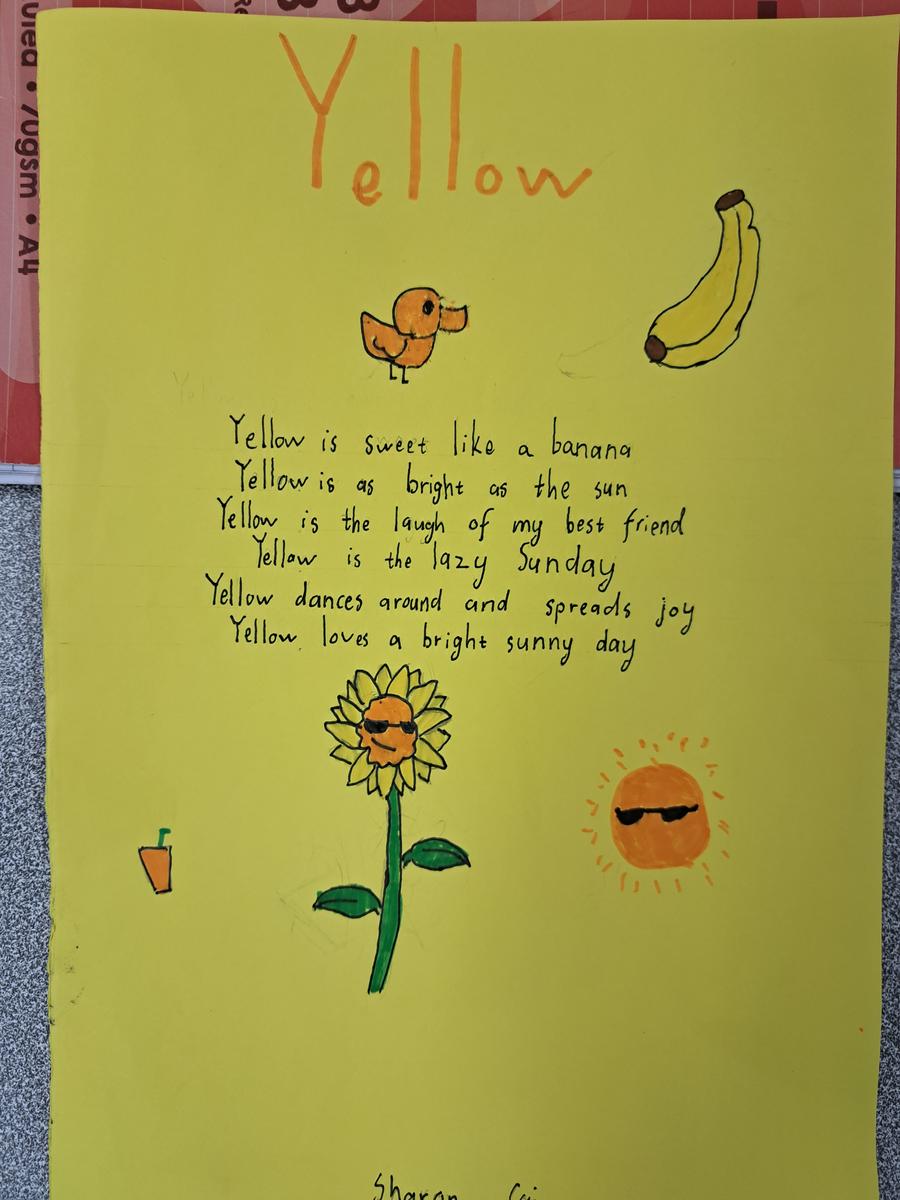 Yellow
Yellow is sweet like a banana
Yellow is as bright as the sun
Yellow is the laugh of my best friend
Yellow is the lazy Sunday
Yellow dances around and spreads joy
Yellow loves a bright sunny day
Sharon
70gsm • A4